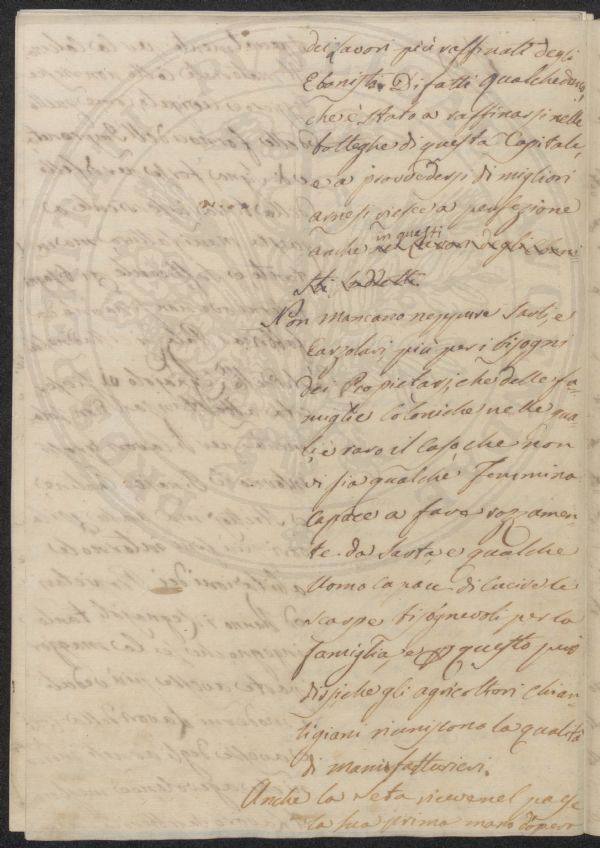 dei lavori più raffinati degli
Ebanisti. Difatti qualcheduno,
che è stato a raffinarsi nelle
botteghe di questa Capitale,
e a provvedersi di migliori
arnesi riesce a perfezione
anche in questi
Non mancano neppure Sarti, e
Calzolari più per i bisogni
dei Propietarj, che delle fa-
miglie Coloniche, nelle qua-
li, è raro il caso che non
vi sia qualche femmina
capace a fare rozzamen-
te da sarta, e qualche
Uomo capace di cucire le
scarpe bisognevoli per la
famiglia, e questo può
dirsi che gli agricoltori Chian-
tigiani riuniscono la qualità
di manifatturieri.
Anche la seta riceve nel paese
la sua prima mano d'oper